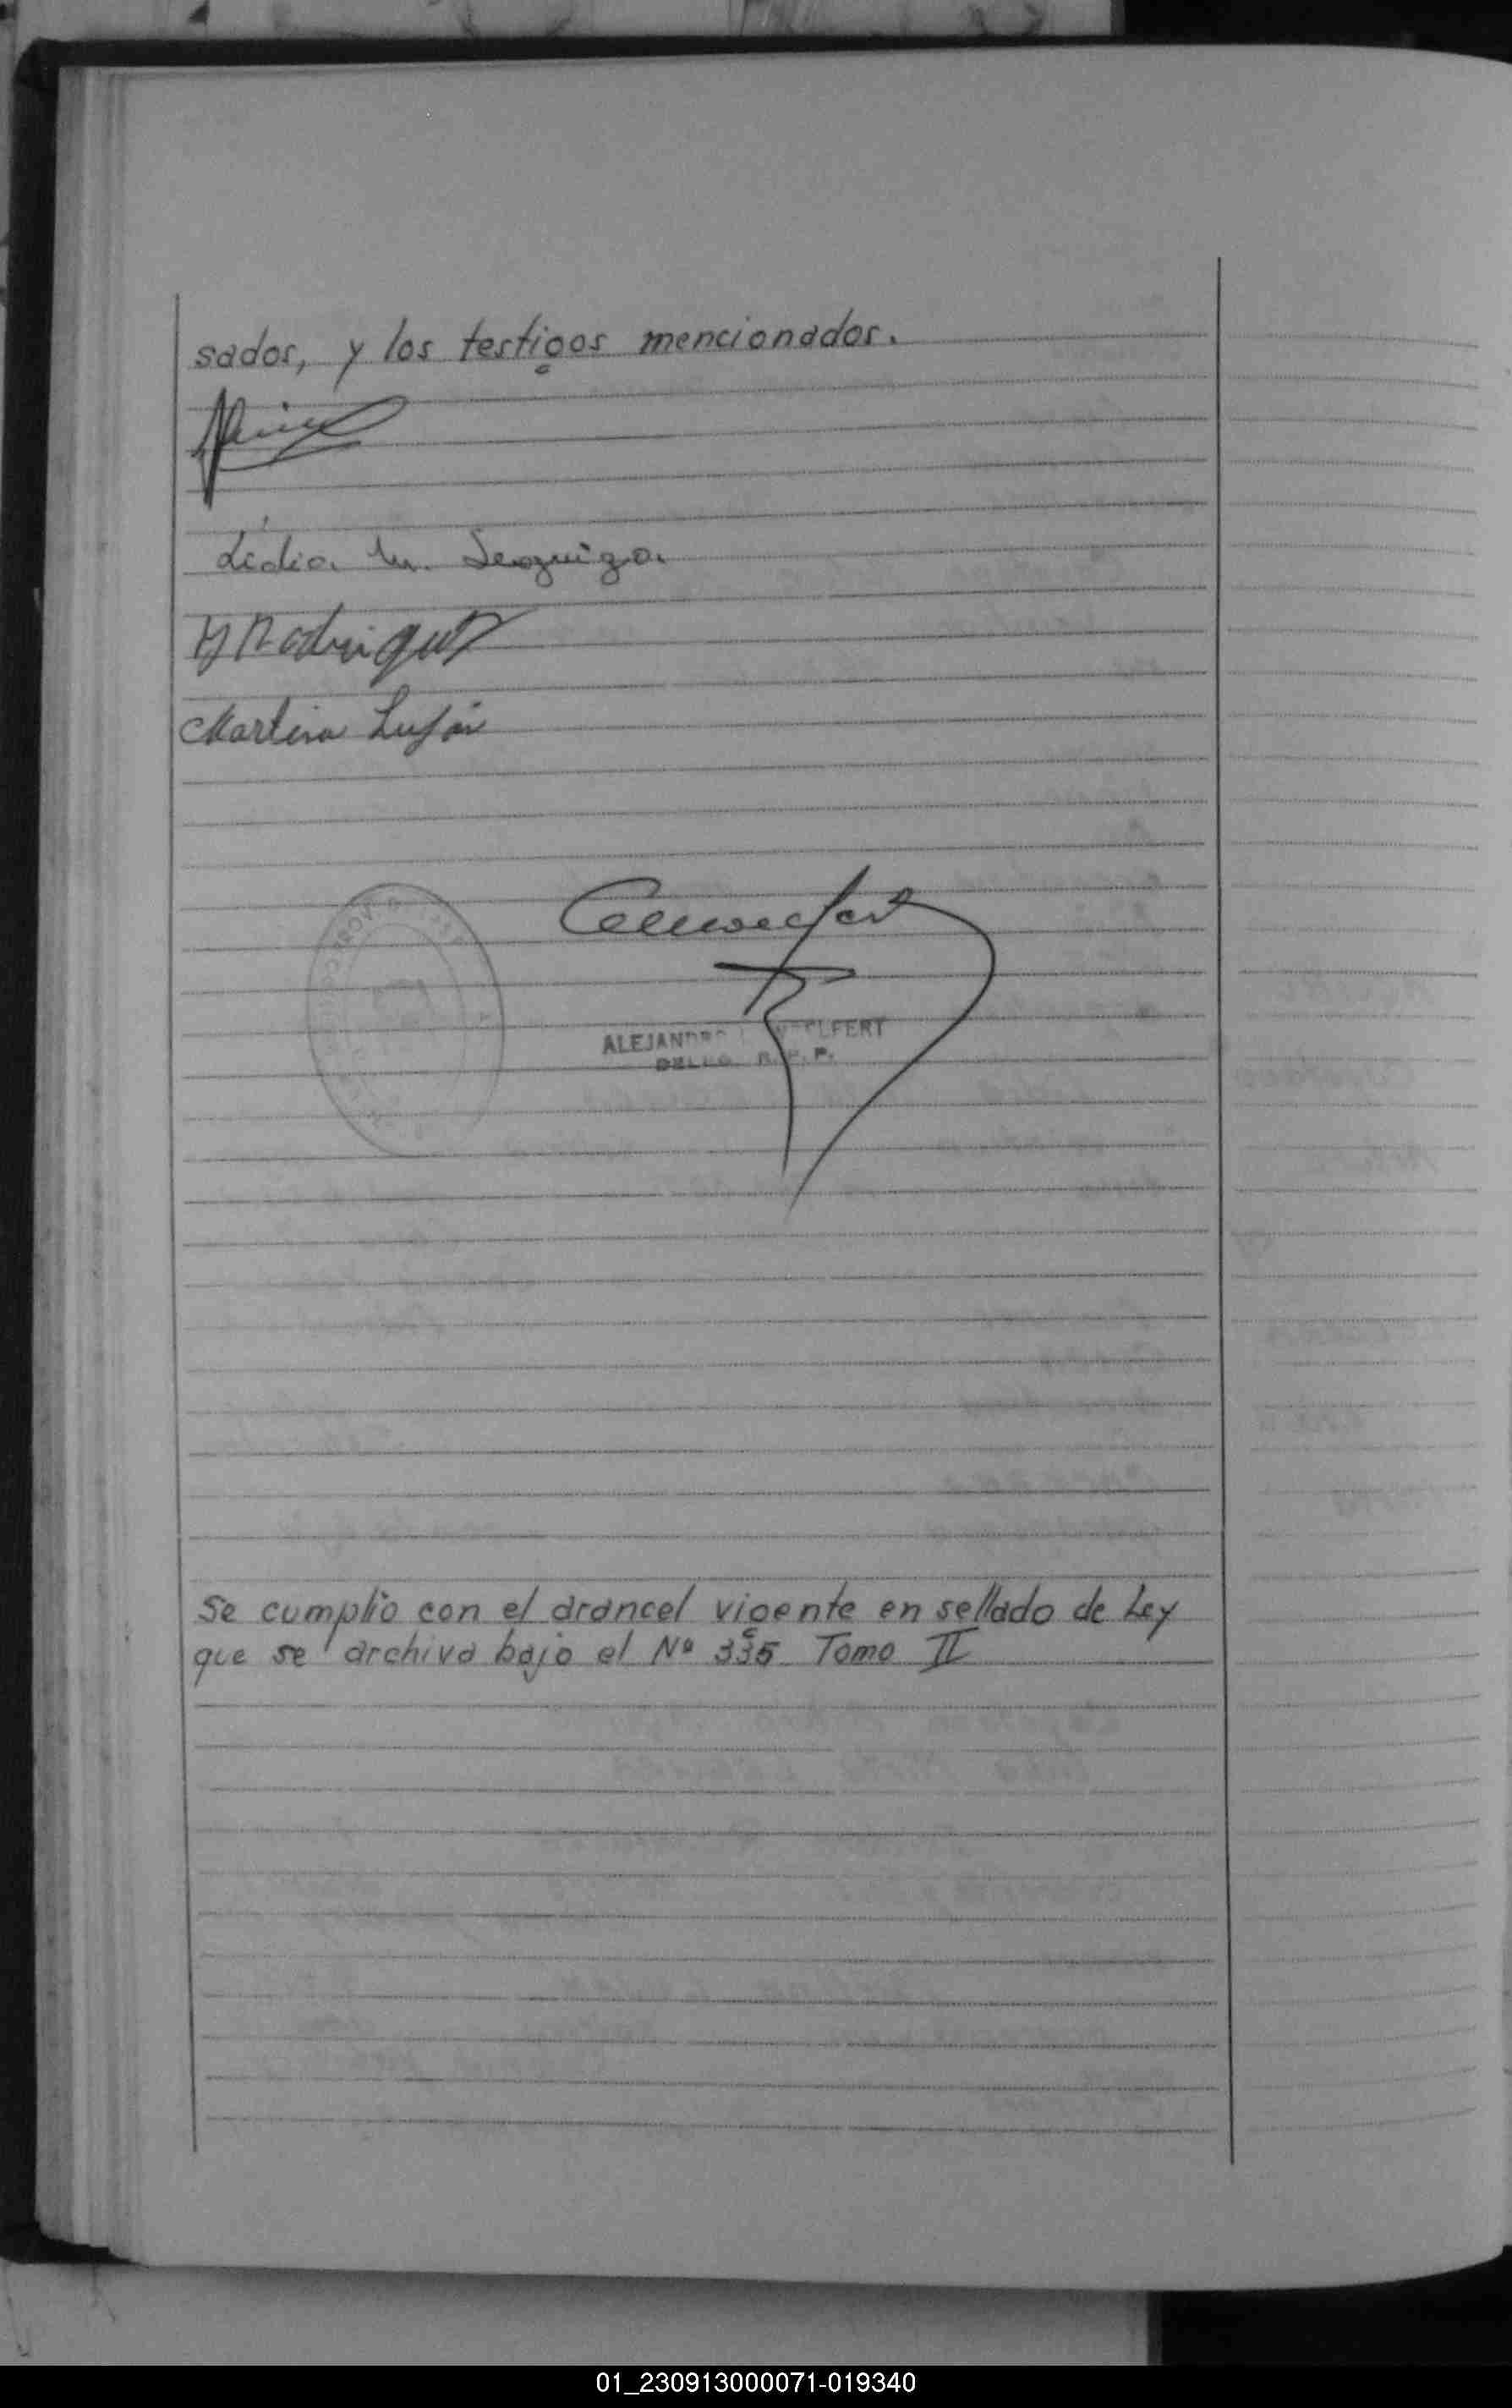 sados, y los testigos mencionados.
Lidia M.
H Rodriguez
Martina Luján
ALEJANDRO
DELEG. R. P.
Se cumplió con el arancel vigente en sellado de Ley
que se archiva bajo el Nº 335 Tomo II
01_230913000071-019340